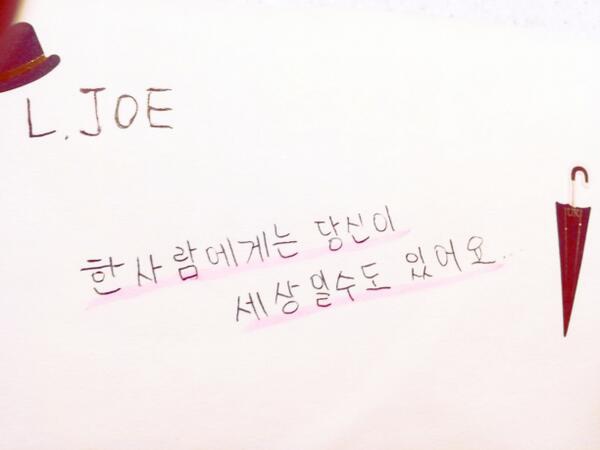 L.JOE
한사람에게는 당신이
세상일수도 있어요..